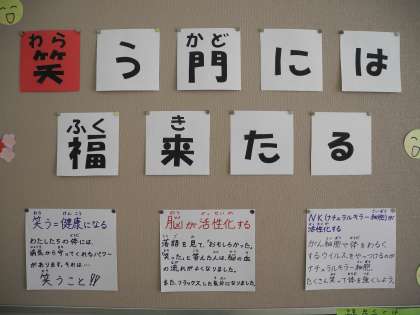 笑う門には
福来たる
笑う=健康になる
わたしたちの体には、
病気から守ってくれるパワー
があります。それは…
笑うこと!!
脳が活性化する
落語を見て、「おもしろかった。
笑った」と答えた人は、脳の血
の流れがよくなりました。
また、リラックスした気分になりました。
NK(ナチュラルキラー細胞)が
活性化する
がん細胞や体をわるく
するウイルスをやっつけるのが
ナチュラルキラー細胞。
たくさん笑って体を強くしよう。